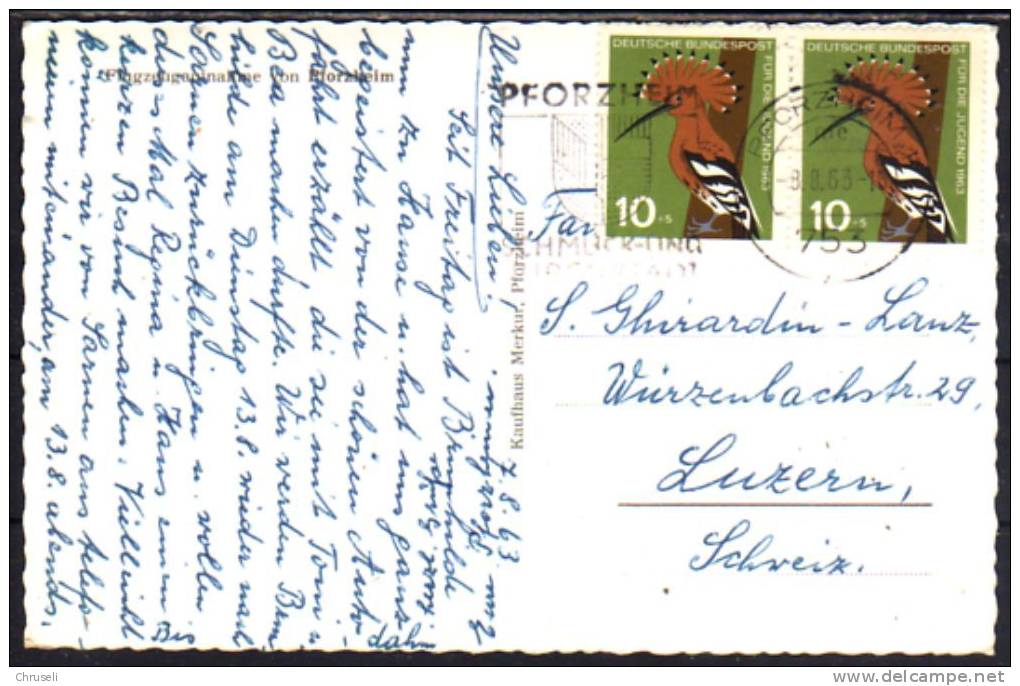 Flugzeugaufnahme von Pforzheim
Unsere Lieben!
7.8.63
Seit Freitag ist Brunhilde
nun zu Hause u. hat uns ganz
begeistert von der schönen Auto-
fahrt erzählt, die sie mit Toni u.
Bea machen durfte. Wir werden Brun-
hilde am Dienstag 13.8. wieder nach
Sarnen zurückbringen u. wollen
dies Mal Regina u. Hans einen
kurzen Besuch machen. Vielleicht
können wir von Sarnen aus telefo-
nieren miteinander, am 13.8. abends.
Bis
dahin
Kaufhaus Merkur, Pforzheim
DEUTSCHE BUNDESPOST
FÜR DIE JUGEND 1963
10+5
DEUTSCHE BUNDESPOST
FÜR DIE JUGEND 1963
10+5
PFORZHEIM
SCHMUCK-UND
PFORZHEIM
-8.8.63-1
753
Fam
S. Ghirardin-Lanz,
Würzenbachstr. 29,
Luzern,
Schweiz.
Chruseli
delcampe.net